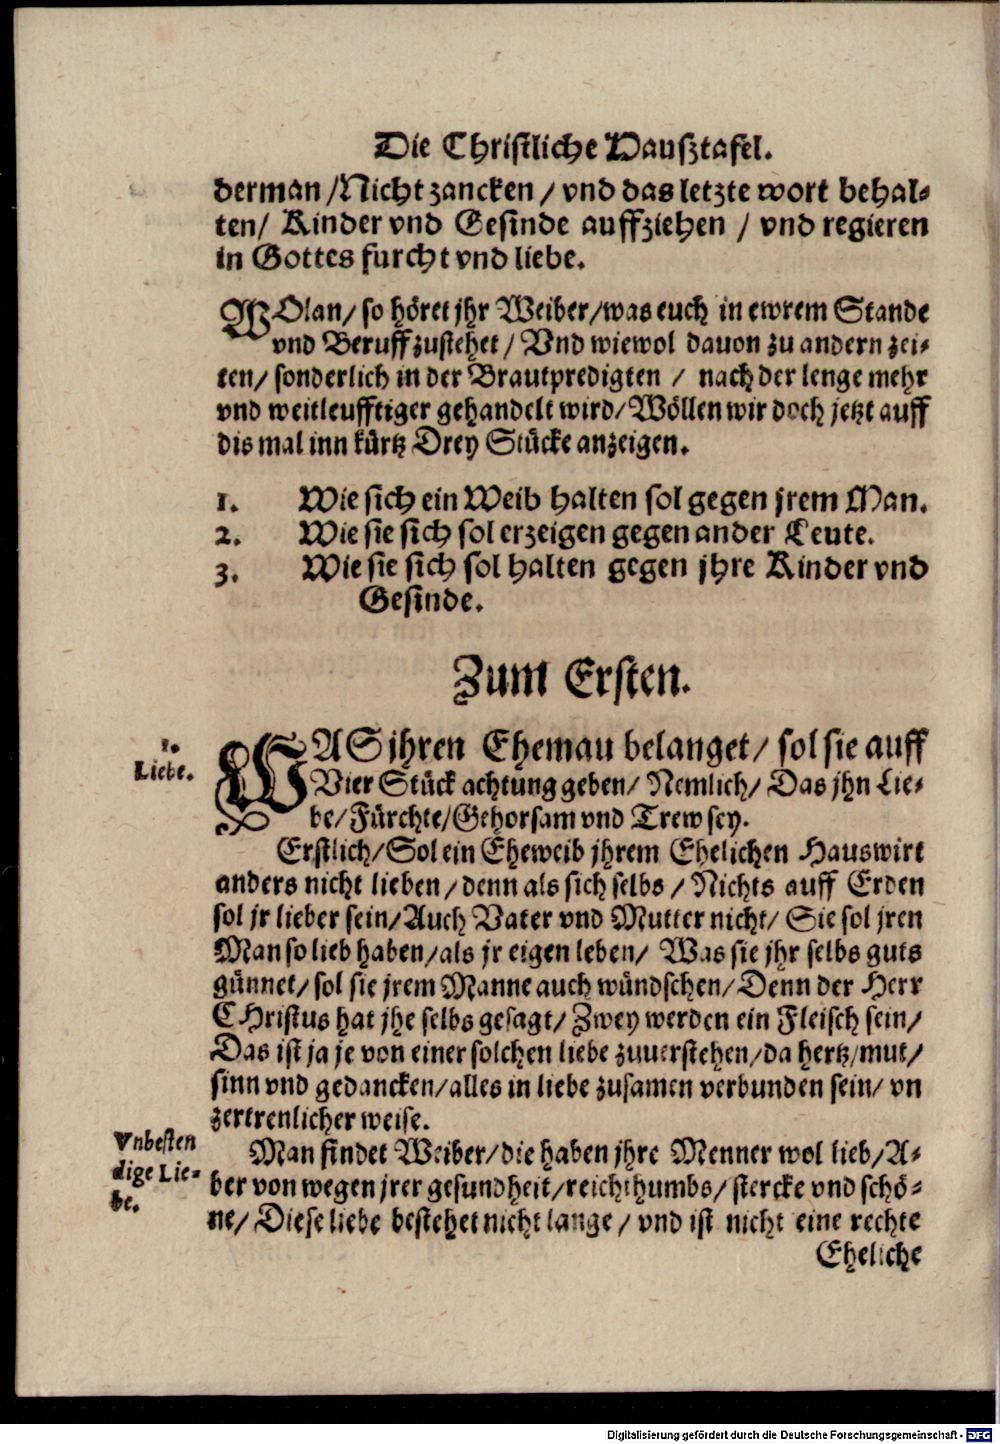 Die Christliche Haußtafel.
derman /Nicht zancken / vnd das letzte wort behal⸗
ten/ Kinder vnd Gesinde auffziehen / vnd regieren
in Gottes furcht vnd liebe.
WOlan/ so höret jhr Weiber/was euch in ewrem Stande
vnd Beruff zustehet / Vnd wiewol dauon zu andern zei⸗
ten/ sonderlich in der Brautpredigten / nach der lenge mehr
vnd weitleufftiger gehandelt wird/ Wöllen wir doch jetzt auff
dis mal inn kürtz Drey Stücke anzeigen.
1. Wie sich ein Weib halten sol gegen jrem Man.
2. Wie sie sich sol erzeigen gegen ander Leute.
3. Wie sie sich sol halten gegen jhre Kinder vnd
Gesinde.
Zum Ersten.
1.
Liebe.
WAS jhren Ehemau belanget/ sol sie auff
Vier Stück achtung geben/ Nemlich/ Das jhn Lie⸗
be/ Fürchte/ Gehorsam vnd Trew sey.
Erstlich/ Sol ein Eheweib jhrem Ehelichen Hauswirt
anders nicht lieben/ denn als sich selbs / Nichts auff Erden
sol jr lieber sein/ Auch Vater vnd Mutter nicht/ Sie sol jren
Man so lieb haben/ als jr eigen leben/ Was sie jhr selbs guts
günnet/ sol sie jrem Manne auch wündschen/ Denn der Herr
CHristus hat jhe selbs gesagt/ Zwey werden ein Fleisch sein/
Das ist ja je von einer solchen liebe zuuerstehen/ da hertz/ mut/
sinn vnd gedancken/ alles in liebe zusamen verbunden sein/ vn
zertrenlicher weise.
Vnbesten
dige Lie⸗
be.
Man findet Weiber/ die haben jhre Menner wol lieb/ A⸗
ber von wegen jrer gesundheit/ reichthumbs/ stercke vnd schö⸗
ne/ Diese liebe bestehet nicht lange / vnd ist nicht eine rechte
Eheliche
Digitalisierung gefördert durch die Deutsche Forschungsgemeinschaft - DFG